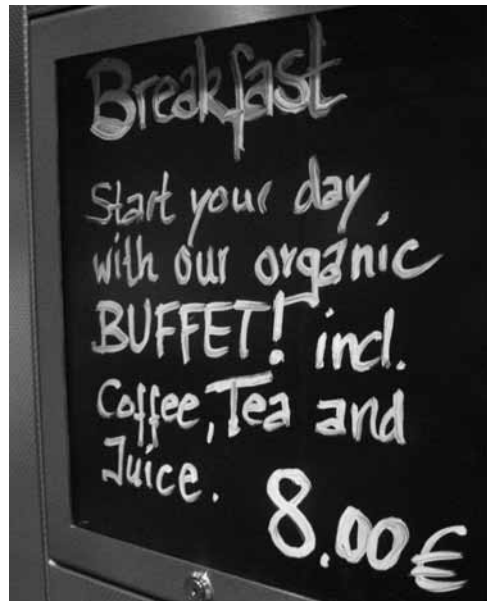 Breakfast
Start your day,
with our organic
BUFFET! incl.
Coffee, Tea and
Juice.
8.00€